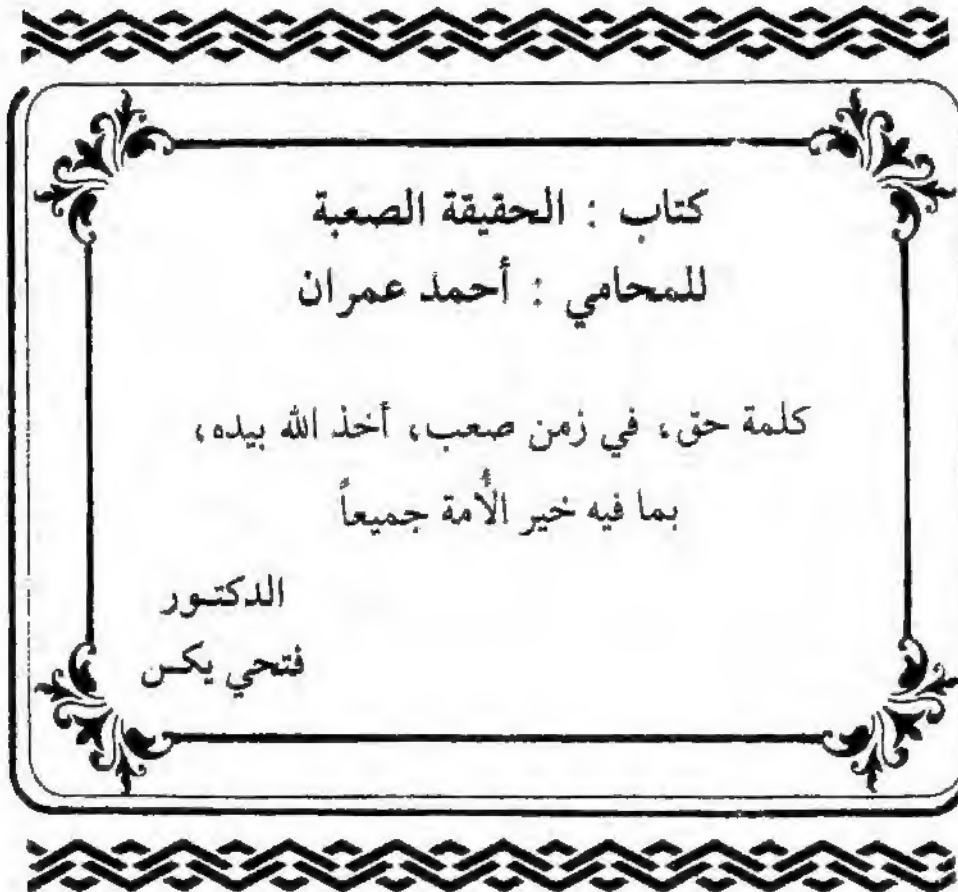 كتاب : الحقيقة الصعبة
للمحامي : أحمد عمران
كلمة حق، في زمن صعب، أخذ الله بيده،
بما فيه خير الأُمة جميعاً
الدكتـور
فتحي يكـن